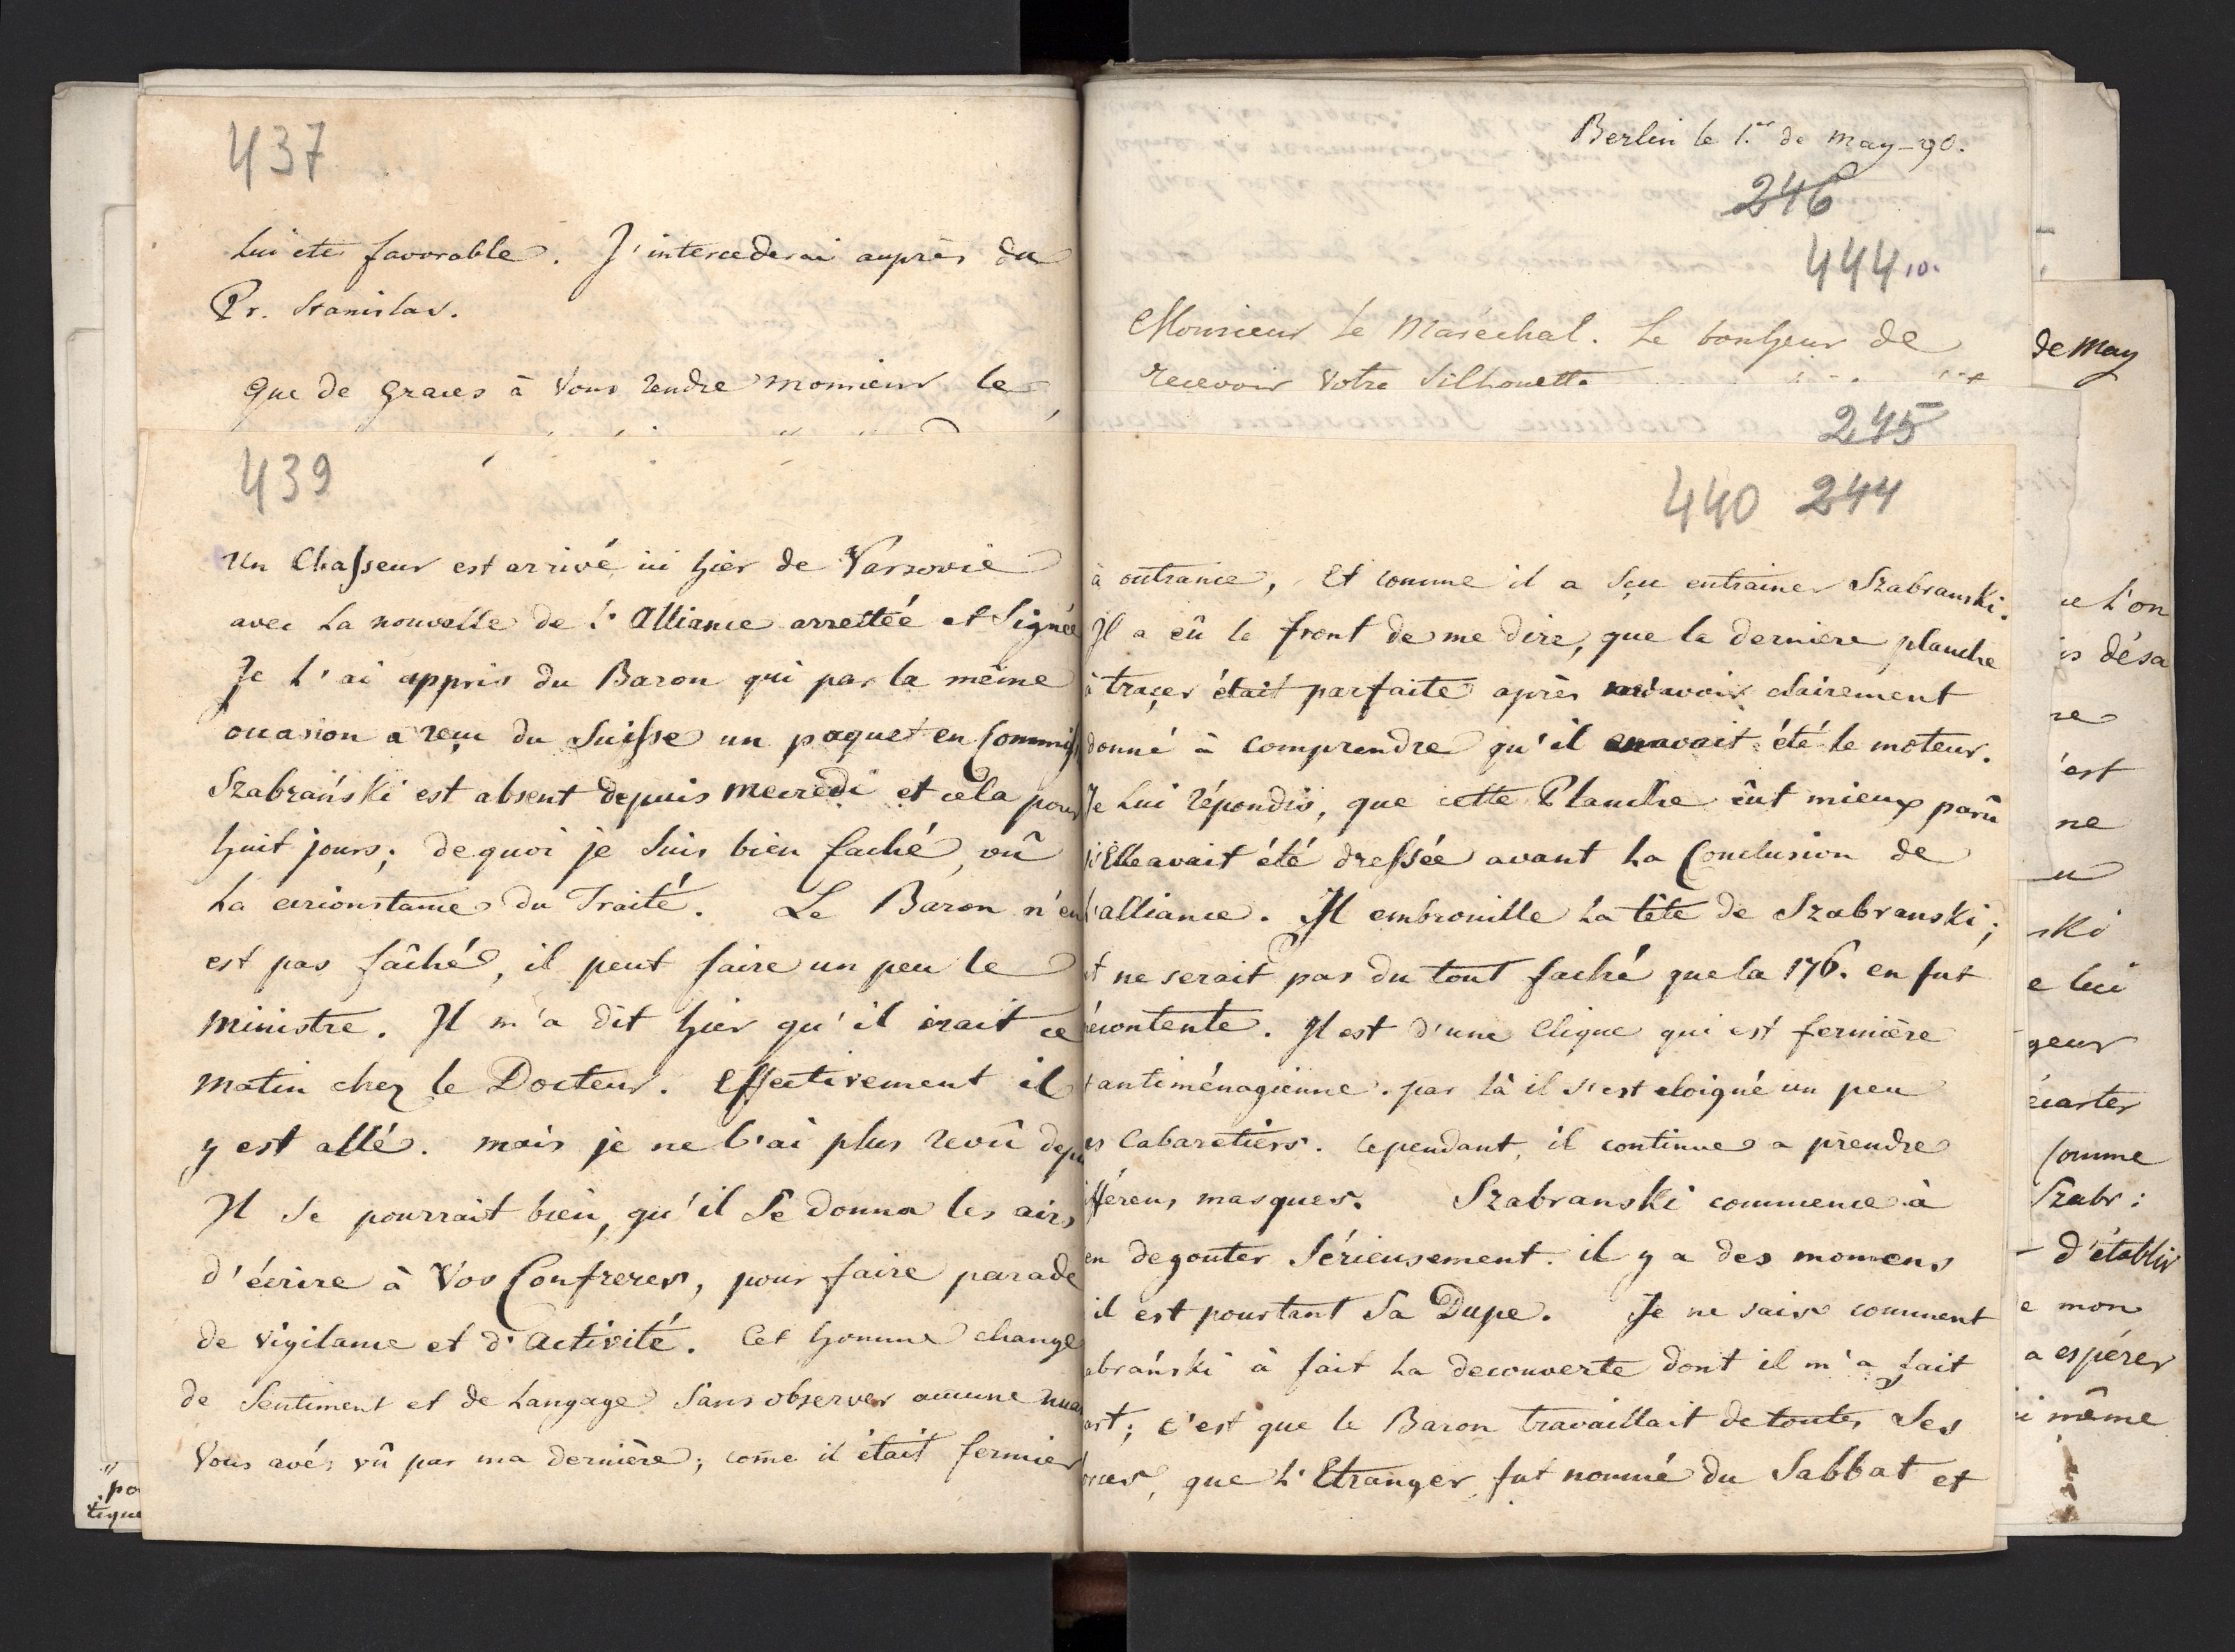 437
lui ete favorable. J'intercederai auprès du
Pr. Stanislas.
que de graces à Vous rendre monsieur le
439
Un Chasseur est arrivé ici hier de Varsovie
avec la nouvelle de l'Alliance arrettée et Signée
Je l'ai appris du Baron qui par la même
occasion a reçu du Suisse un paquet en Commiss
Szabrański est absent depuis mercredi et cela pour
huit jours; dequoi je suis bien faché, vû
la circonstance du Traité. Le Baron n'en
est pas fâché, il peut faire un peu le
ministre. Il m'a dit hier qu'il irait ce
matin chez le Docteur. Effectivement il
y est allé. mais je ne l'ai plus revû depu
Il se pourrait bien, qu'il se donna les airs
d'écrire à Vos Confreres, pour faire parade
de vigilance et d'activité. Cet homme change
de Sentiment et de Langage Sans observer aucune nua
Vous avés vû par ma dernière; come il était fermier
Berlin le 1.er de may - 90.
246
444 10.
Monsieur le Maréchal. Le bonheur de
recevoir Votre Silhouette
245
440 244
à outrance, Et comme il a sçu entrainer Szabranski.
Il a eû le front de me dire, que la derniere planche
à traçer était parfaite après m'avoir clairement
donné à comprendre qu'il en avait été le moteur.
Je lui répondis, que cette Planche eût mieux parû
si Elle avait été dressée avant la Conclusion de
l'alliance. Il embrouille la tête de Szabranski;
et ne serait pas du tout faché que la 176. en fut
écontente. Il est d'une Clique qui est fermière
t antiménagienne. par là il s'est eloigné un peu
es Cabaretiers. Cependant, il continue a prendre
fférens masques. Szabranski commence à
en degouter Sérieusement. il y a des momens
il est pourtant Sa Dupe. Je ne sais comment
abrański à fait la decouverte dont il m'a fait
art; c'est que le Baron travaillait de toutes Ses
orces, que l'Etranger fut nommé du Sabbat et
de May
ue l'on
is désa
re
'est
ne
u
ski
e lui
geur
écarter
Comme
Szabr:
- d'établir
e mon
a espérer
i même
po
tique